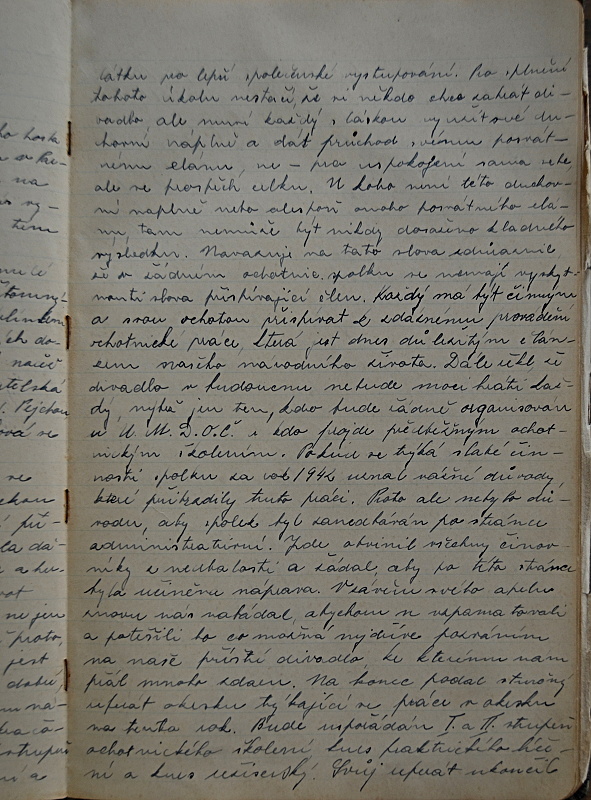 ho hosta
na
tem
ných do-
natelská
J. Pejchou
ková se
se
pů-
la dá-
ne jen
proto,
jest
dobu,
stupeň
ní a
látku na lepší společenské vystupování. Ku splnění
tohoto úkolu nestačí, že si někdo chce zahrát di-
vadlo ale musí každý s láskou využít své du-
chovní náplně a dát průchod svému posvát-
nému elánu, ne – pro uspokojení sama sebe,
ale ve prospěch celku. U koho není této duchov-
ní náplně nebo alespoň onoho posvátného elá-
nu, tam nemůže být nikdy dosaženo kladného
výsledku. Navazuje na tato slova zdůraznil,
že v žádném ochotnic. spolku se nemají vyskyt-
nouti slova přispívající člen. Každý má být činným
a svou ochotou přispívat k zdárnému provádění
ochotnické práce, která jest dnes důležitým člán-
kem našeho národního života. Dále řekl, že
divadlo v budoucnu nebude moci hráti kaž-
dý, nýbrž jen ten, kdo bude řádně organisován
u Ú. M. D. O. Č. a kdo projde předběžným ochot-
nickým školením. Pokud se týká slabé čin-
nosti spolku za rok 1942 uznal vážné důvody,
které přitížily tuto práci. Toto ale nebylo dů-
vodu, aby spolek byl zanedbáván po stránce
administrativní. Zde obvinil všechny činov-
níky z nedbalosti a žádal, aby po této stránce
byla učiněna náprava. V závěru svého apelu
znovu nás nabádal, abychom se vzpamatovali
a potěšili ho co možná nejdříve pozváním
na naše příští divadlo, ke kterému nám
přál mnoho zdaru. Na konec podal stručný
referát okrsku týkající se práce v okrsku
na tento rok. Bude uspořádán I. a II. stupeň
ochotnického školení kurs praktického líče-
ní a kurs režisérský. Svůj referát ukončil